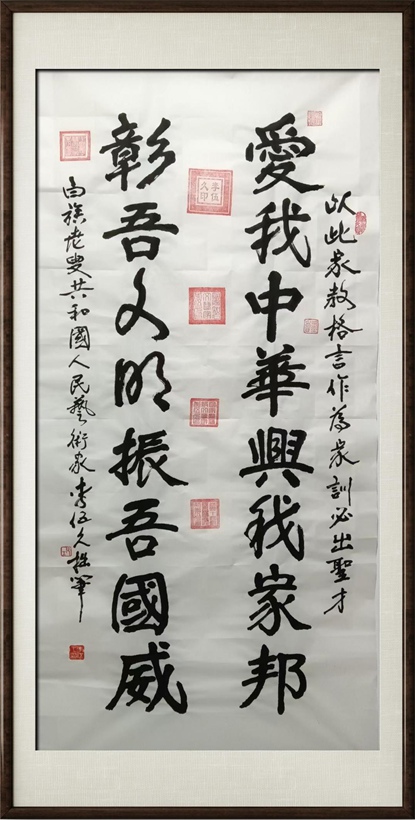 以此家教格言作為家訓必出聖才
愛我中華興我家邦
李伍久印
彰吾文明振吾國威
白族老叟共和國人民藝術家李伍久拙筆